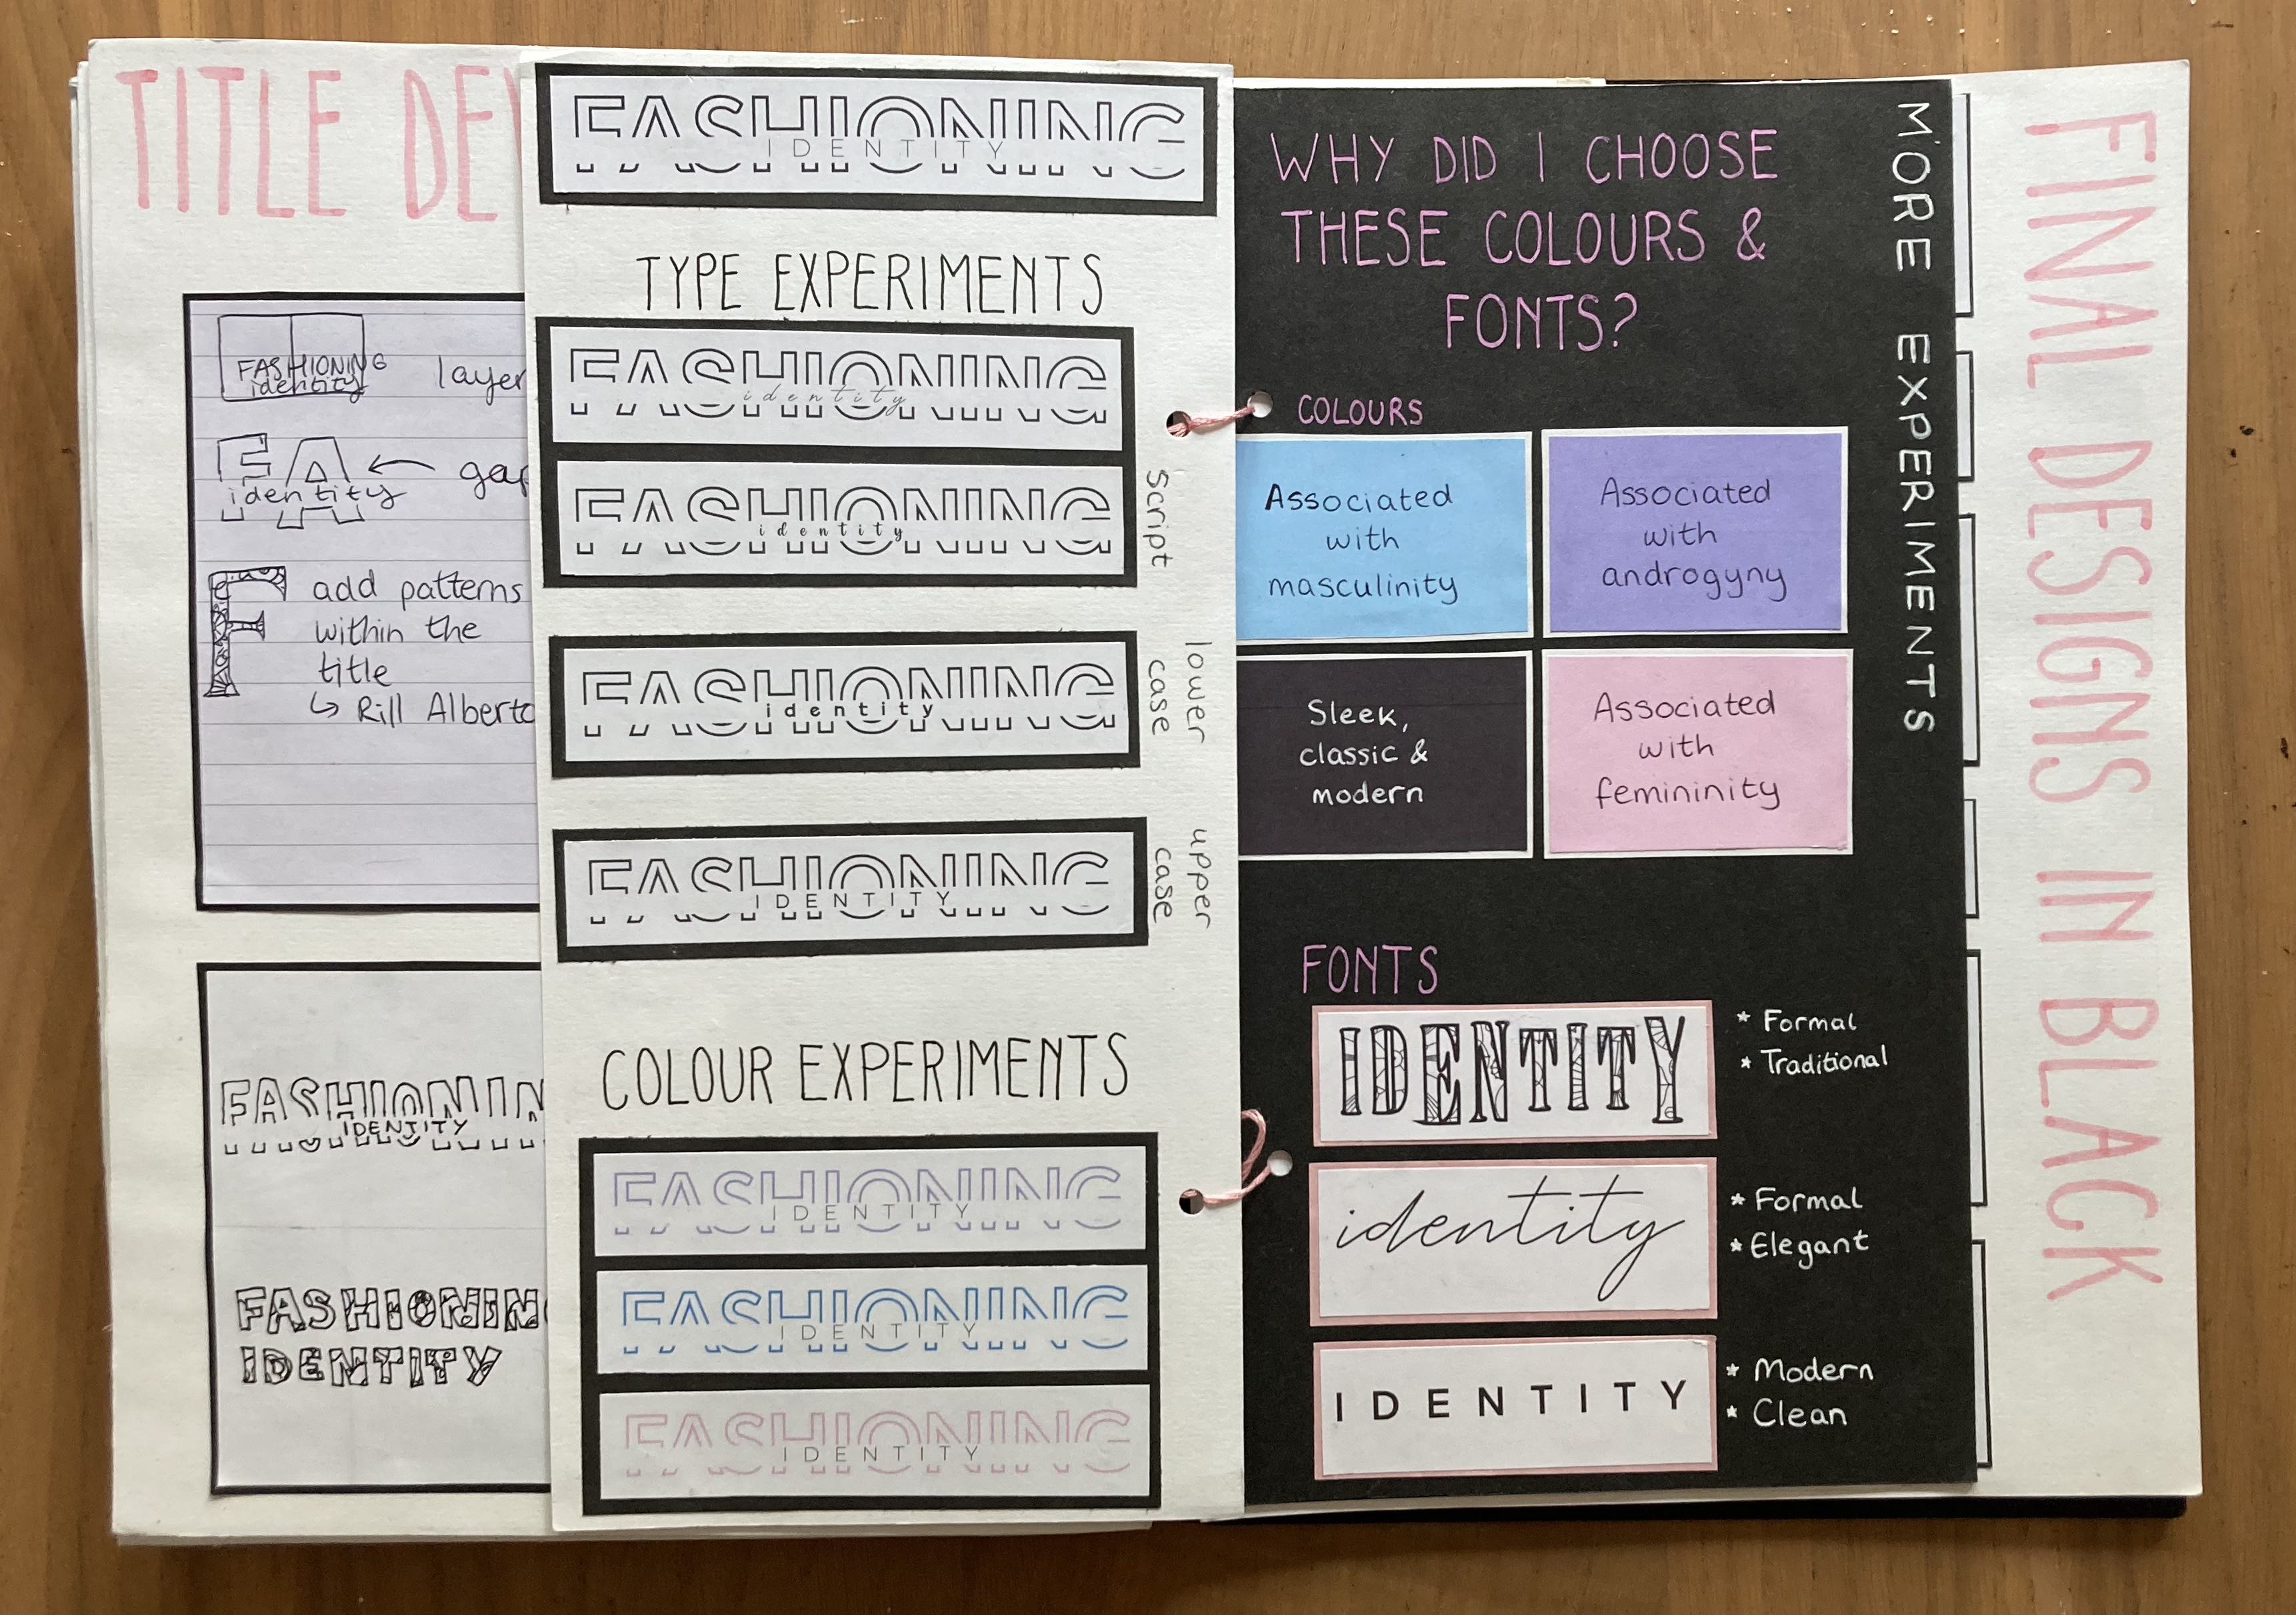 TITLE DEV
FASHIONING
identity
layer
FA
identity
gap
F
add patterns
within the
title
↳ Rill Alberto
FASHIONIN
IDENTITY
FASHIONING
IDENTITY
FASHIONING
IDENTITY
TYPE EXPERIMENTS
FASHIONING
identity
FASHIONING
identity
Script
FASHIONING
identity
lower
case
FASHIONING
IDENTITY
upper
case
COLOUR EXPERIMENTS
FASHIONING
IDENTITY
FASHIONING
IDENTITY
FASHIONING
IDENTITY
WHY DID I CHOOSE
THESE COLOURS &
FONTS?
COLOURS
Associated
with
masculinity
Associated
with
androgyny
Sleek,
classic &
modern
Associated
with
femininity
FONTS
IDENTITY
* Formal
* Traditional
identity
* Formal
* Elegant
IDENTITY
* Modern
* Clean
MORE EXPERIMENTS
FINAL DESIGNS IN BLACK